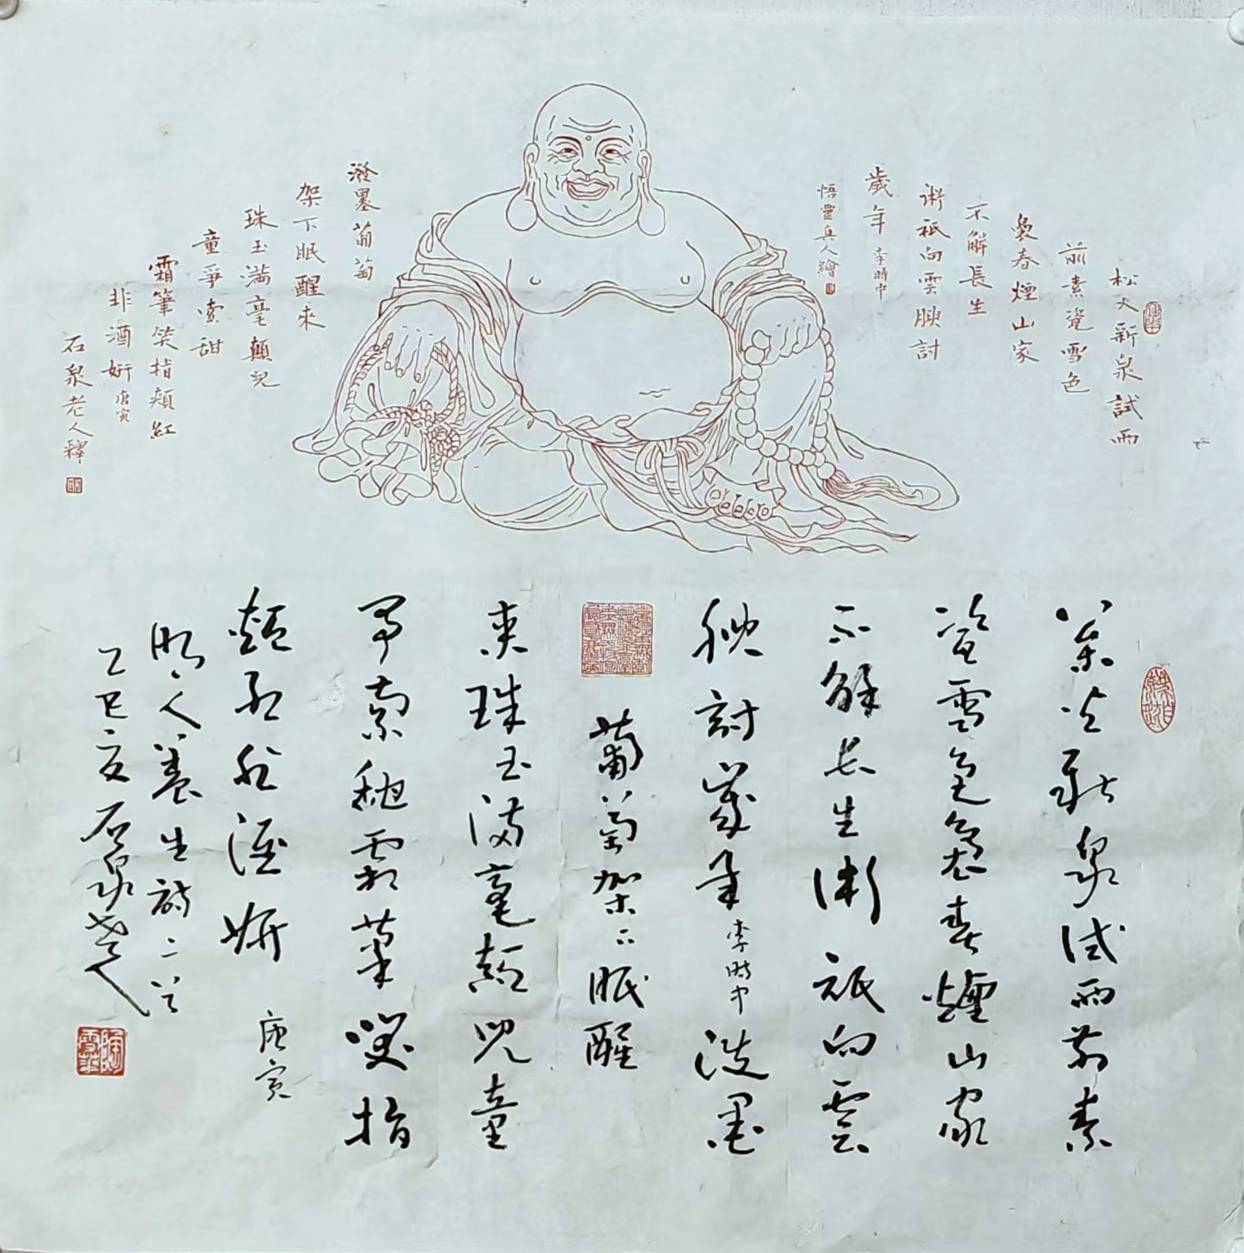 松火新泉試雨
前素瓷雪色
裊春煙山家
不解長生
術祗向雲腴討
歲年 李時中
悟靈真人繪
潑墨葡萄
架下眠醒來
珠玉滿毫顛兒
童爭索甜
霜筆笑指頰紅
非酒妍 唐寅
石泉老人釋
松火新泉試雨前素
瓷雪色裊春煙山家
不解長生術祗向雲
腴討歲年 李時中 潑墨
葡萄架下眠醒
來珠玉滿毫顛兒童
爭索甜霜筆笑指
頰紅非酒妍 唐寅
明人養生詩二首
乙巳夏石泉老人